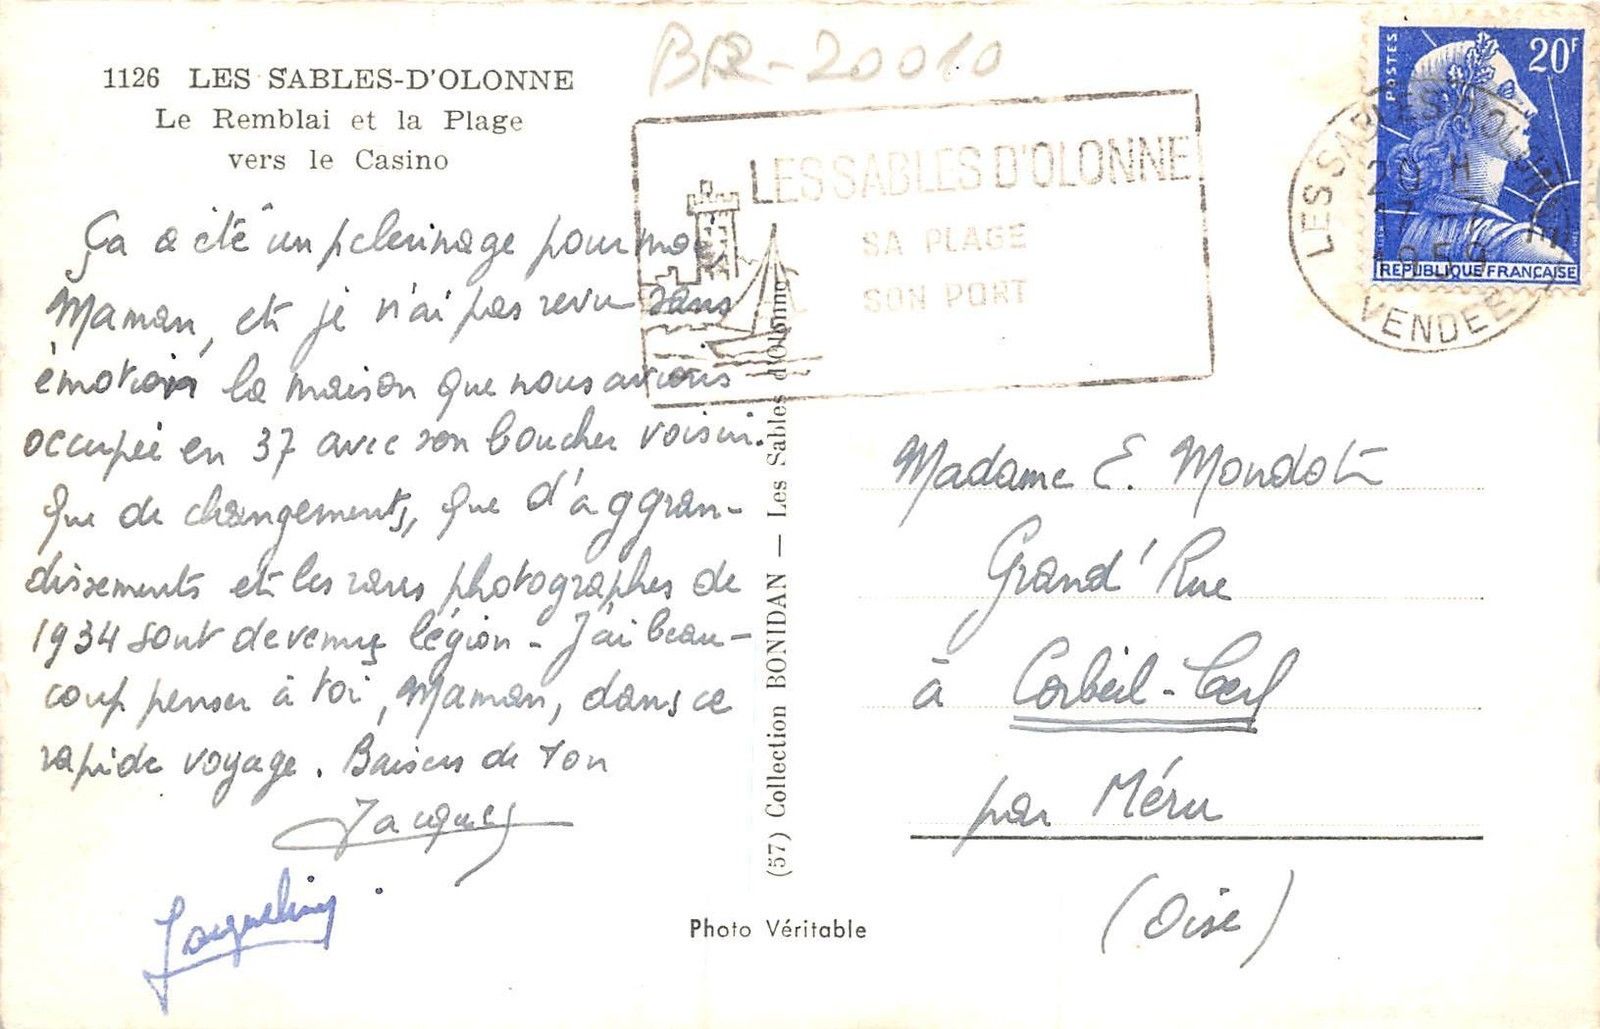 BR-20010
1126 LES SABLES-D'OLONNE
Le Remblai et la Plage
vers le Casino
Ça a été un pelerinage pour moi
Maman, et je n'ai pas revu sans
émotion la maison que nous avions
occupée en 37 avec son boucher voisin.
Que de changements, que d'aggran-
dissements et les rares photographes de
1934 sont devenus légion - J'ai beau-
coup penser à toi, Maman, dans ce
rapide voyage. Baisers de ton
Jacques
Jacqueline
LES SABLES D'OLONNE
SA PLAGE
SON PORT
POSTES
20F
REPUBLIQUE FRANÇAISE
LES SABLES D'OLONNE
20 H
17-7
1959
VENDEE
(57) Collection BONIDAN — Les Sables d'Olonne
Madame E. Mondot
Grand' Rue
à Corbeil-Cerf
par Méru
(Oise)
Photo Véritable